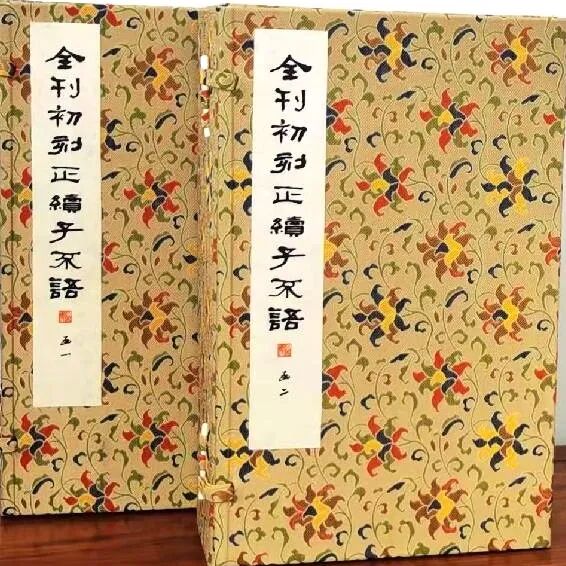 全刊初刻正續子不語
函一
全刊初刻正續子不語
函二